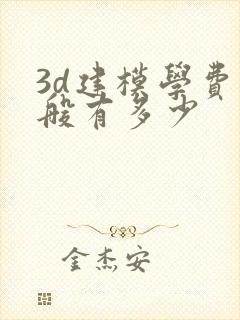 3d建模學費
般有多少
金杰安